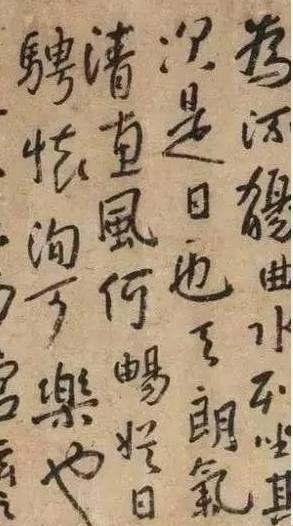 為流觴曲水列坐其
次是日也天朗氣
清惠風何暢日
騁懷洵可樂也